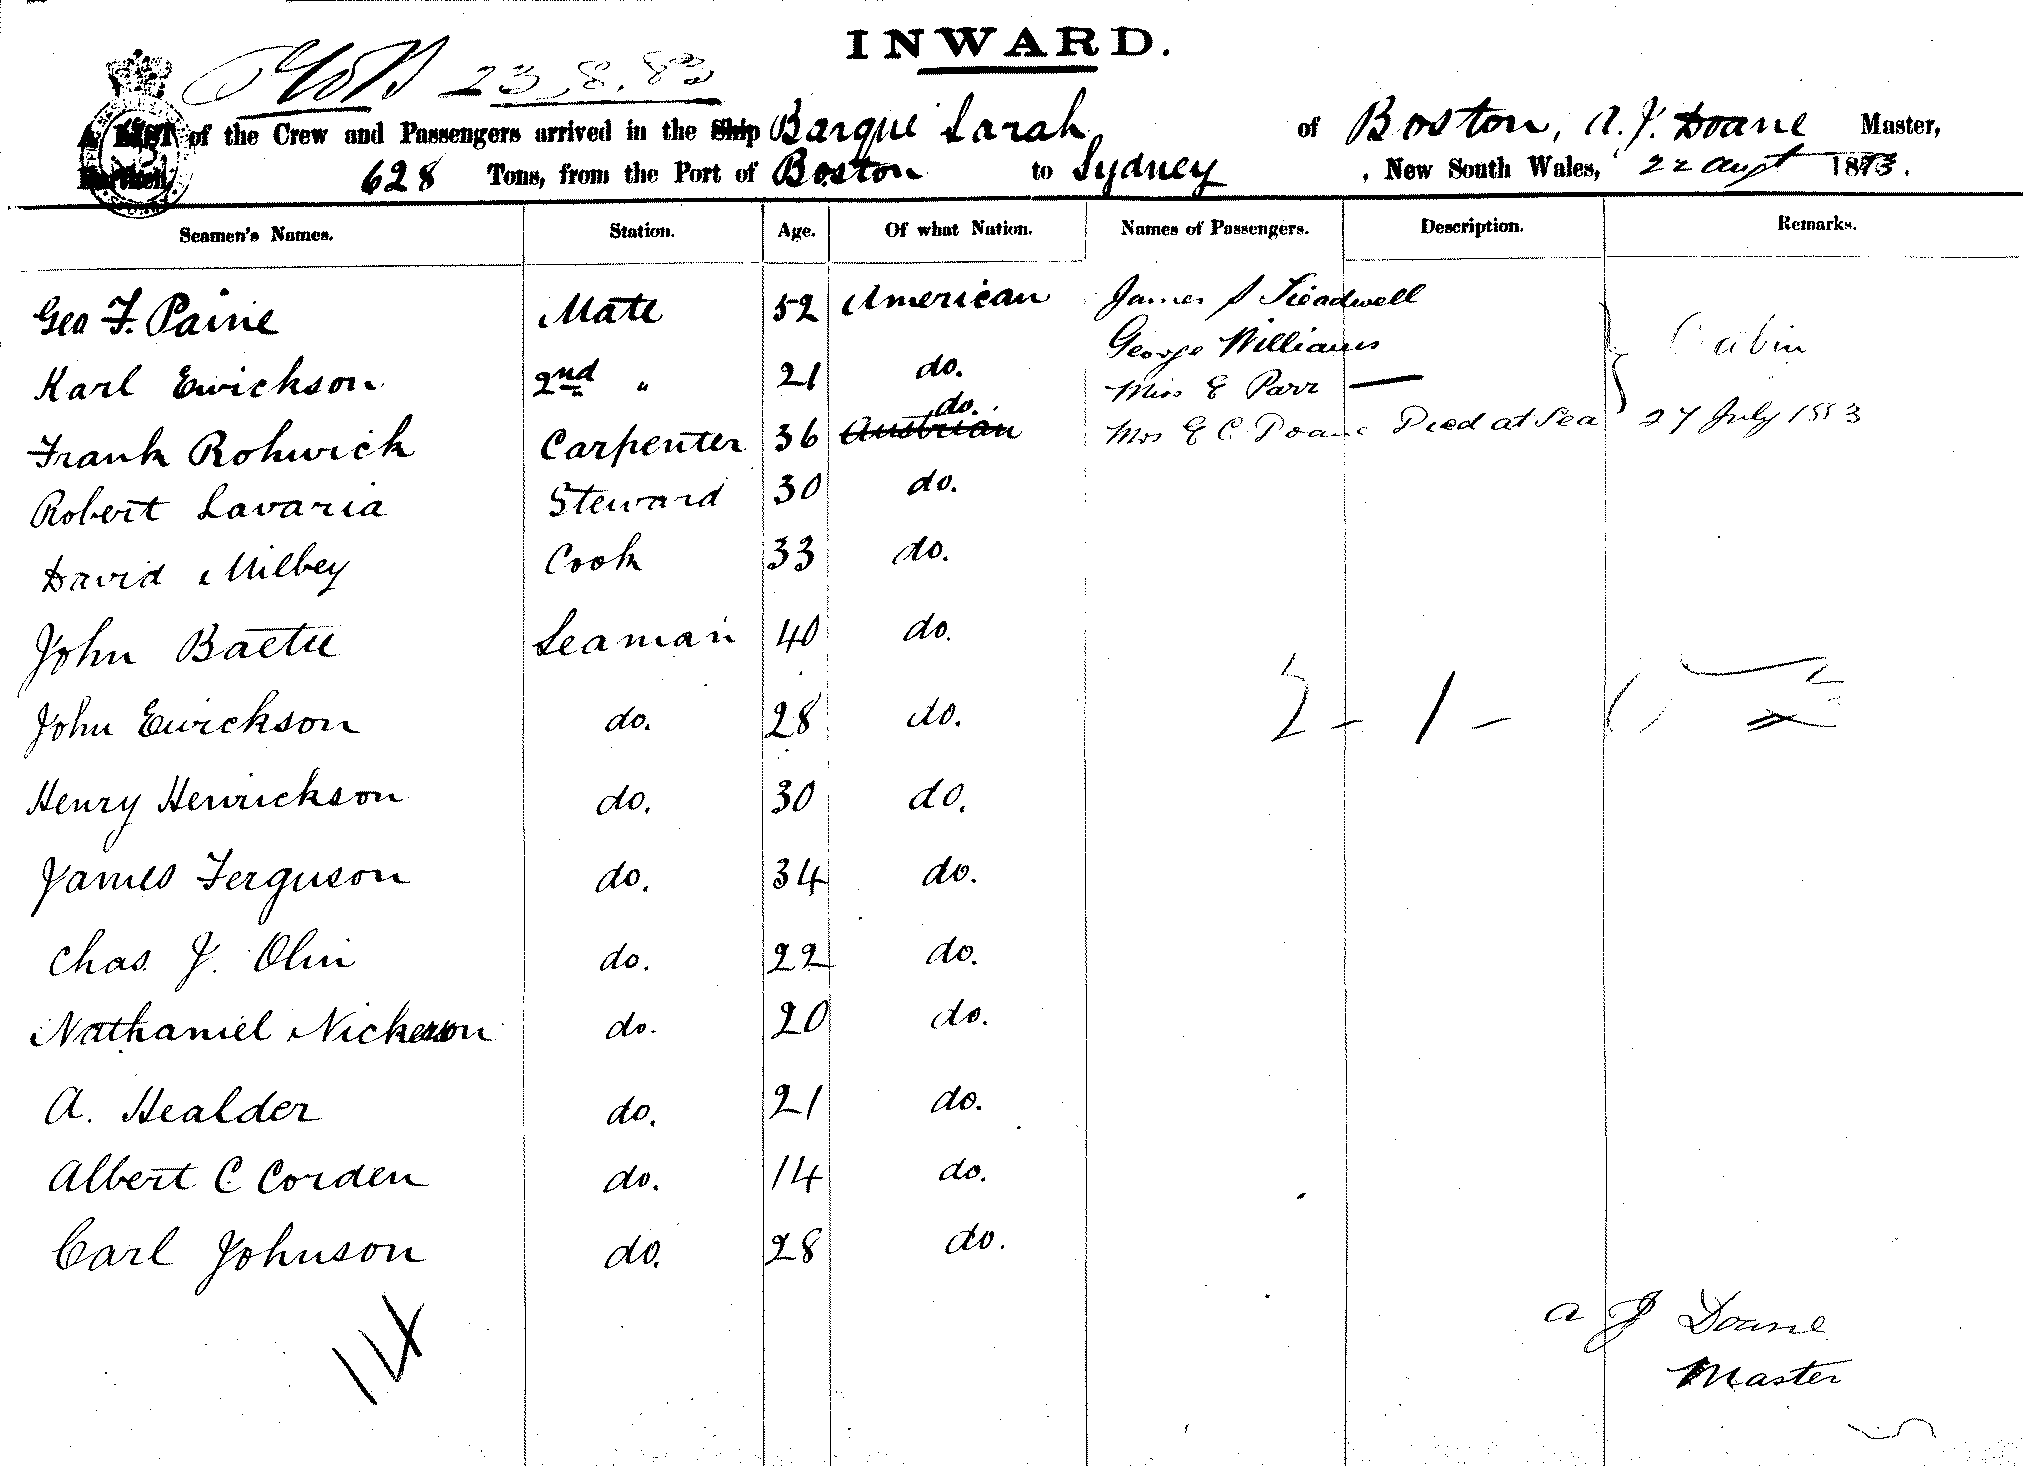 INWARD.
23.8.83
A List of the Crew and Passengers arrived in the Ship Barque Sarah of Boston, A. J. Doane Master,
Burthen, 628 Tons, from the Port of Boston to Sydney, New South Wales, 22 Augt 1883.
Seamen's Names. Station. Age. Of what Nation. Names of Passengers. Description. Remarks.
Geo F. Paine Mate 52 American James S Treadwell
George Williams Cabin
Karl Ewickson 2nd " 21 do. Miss E Parr —
Frank Rohwick Carpenter 36 Austrian do. Mrs E C Doane Died at Sea 27 July 1883
Robert Lavaria Steward 30 do.
David Milbey Cook 33 do.
John Baetu Seaman 40 do.
John Ewickson do. 28 do.
Henry Henrickson do. 30 do.
James Ferguson do. 34 do.
Chas. J. Olin do. 22 do.
Nathaniel Nickerson do. 20 do.
A. Healder do. 21 do.
Albert C Corden do. 14 do.
Carl Johnson do. 28 do.
14
A J Doane
Master